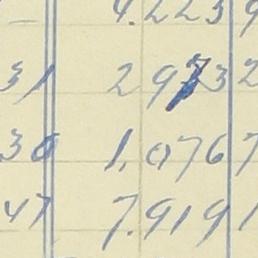 4.223 9
31 2932 2
30 1.076 7
47 7.919 1